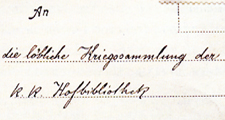 An
die löbliche Kriegssammlung der
k. k. Hofbibliothek